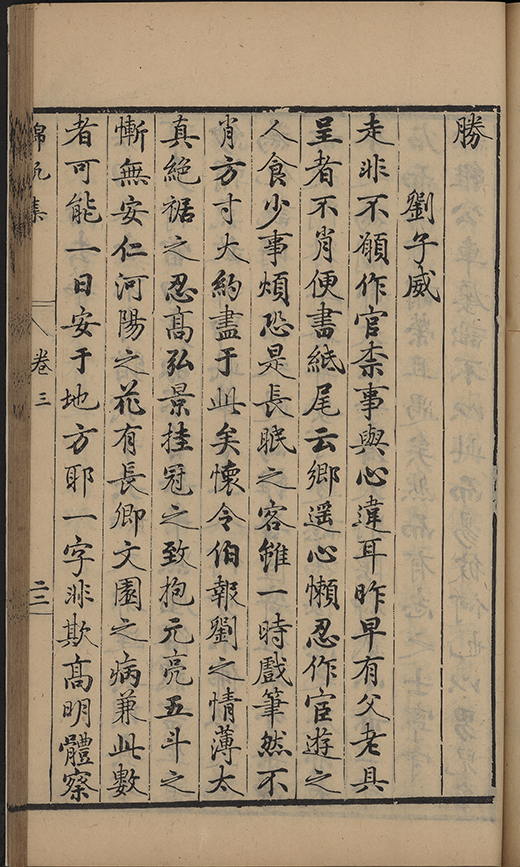 勝
劉子威
走非不願作官柰事與心違耳昨早有父老具
呈者不肖便書紙尾云鄉遥心懶忍作宦遊之
人食少事煩恐是長眠之客雖一時戲筆然不
肖方寸大約盡于此矣懷令伯報劉之情薄太
真絶裾之忍髙弘景挂冠之致抱元亮五斗之
慚無安仁河陽之花有長卿文園之病兼此數
者可能一日安于地方耶一字非欺髙明體察
錦帆集
卷三
二